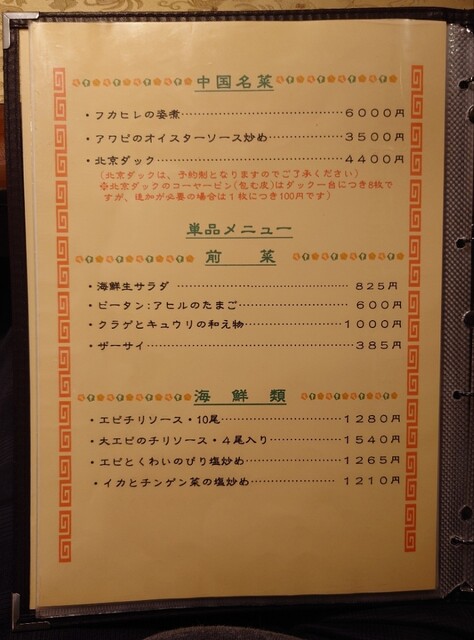 中国名菜
・フカヒレの姿煮……………………6000円
・アワビのオイスターソース炒め…………3500円
・北京ダック……………………………4400円
(北京ダックは、予約制となりますのでご了承ください)
※北京ダックのコーヤーピン(包む皮)はダック一台につき8枚で
すが、追加が必要の場合は1枚につき100円です)
単品メニュー
前 菜
・海鮮生サラダ……………………………825円
・ピータン:アヒルのたまご………………600円
・クラゲとキュウリの和え物………………1000円
・ザーサイ…………………………………385円
海 鮮 類
・エビチリソース・10尾…………………1280円
・大エビのチリソース・4尾入り…………1540円
・エビとくわいのぴり塩炒め………………1265円
・イカとチンゲン菜の塩炒め………………1210円